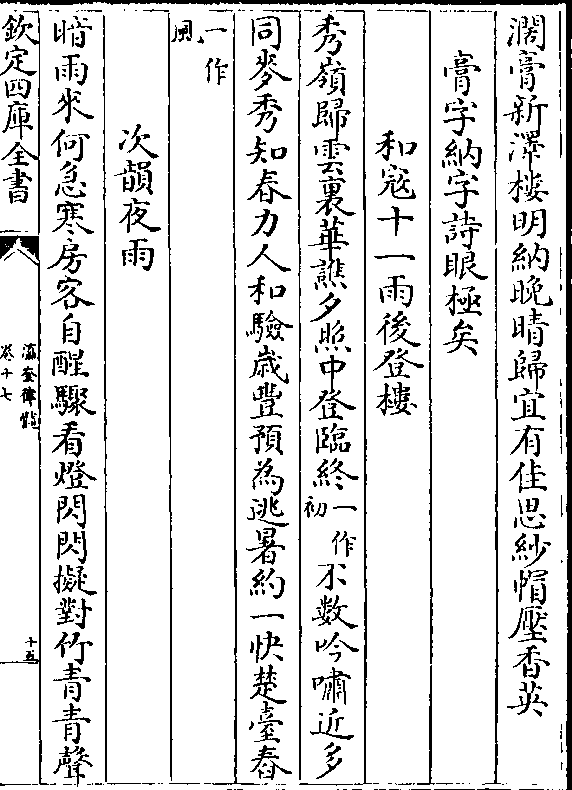 濶膏新澤樓明納晚晴歸宜有佳思紗帽壓香英
膏字納字詩眼極矣
和寇十一雨後登樓
秀嶺歸雲裏華譙夕照中登臨終一作初不数吟嘯近多
同麥秀知春力人和驗歳豐預為逃暑約一快楚臺春
一作風
次韻夜雨
暗雨來何急寒房客自醒驟看燈閃閃擬對竹青青聲
欽定四庫全書
瀛奎律髓
卷十七
十五